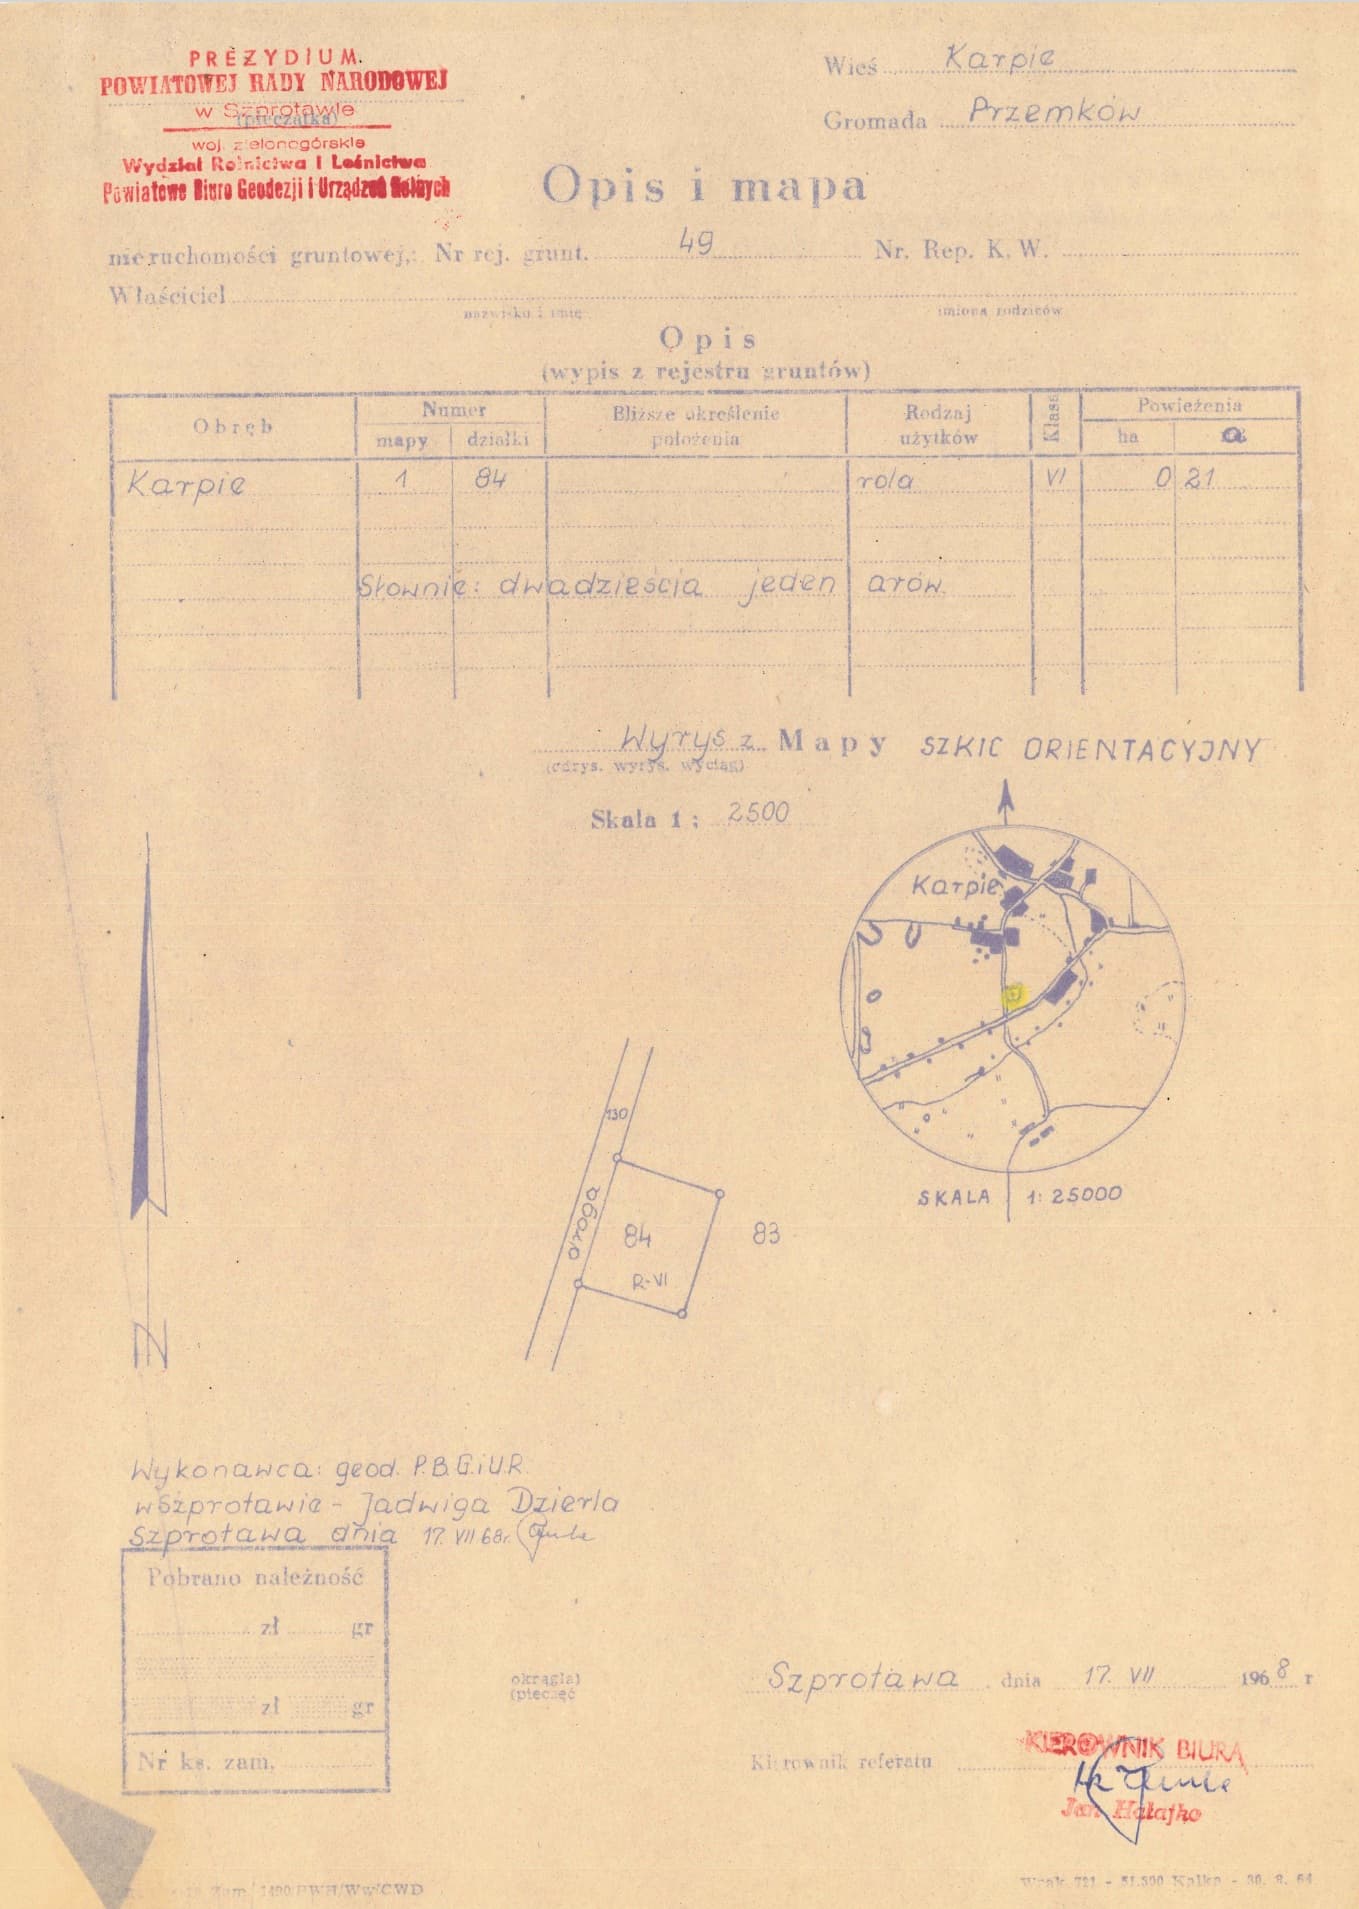 PREZYDIUM
POWIATOWEJ RADY NARODOWEJ
w Szprotawie
(pieczątka)
woj. zielonogórskie
Wydział Rolnictwa i Leśnictwa
Powiatowe Biuro Geodezji i Urządzeń Rolnych
Wieś Karpie
Gromada Przemków
Opis i mapa
nieruchomości gruntowej,: Nr rej. grunt. 49 Nr. Rep. K. W.
Właściciel
nazwisko i imię imiona rodziców
Opis
(wypis z rejestru gruntów)
Obręb Numer Bliższe określenie położenia Rodzaj użytków Klasa Powieżenia
mapy działki ha a
Karpie 1 84 rola VI 0 21
Słownie: dwadzieścia jeden arów
Wyrys z Mapy SZKIC ORIENTACYJNY
(odrys. wyrys. wyciąg)
Skala 1 : 2500
Karpie
130
droga
84
83
R-VI
SKALA 1:25000
N
Wykonawca: geod. P.B.G.iU.R.
w Szprotawie - Jadwiga Dzierla
Szprotawa dnia 17. VII 68r.
Pobrano należność
zł gr
zł gr
Nr ks. zam.
okrągła)
(pieczęć
Szprotawa dnia 17. VII 1968 r
Kierownik referatu
KIEROWNIK BIURA
Jan Hałajko
Zam 1490/PWH/Ww/CWD
- 51.300 Kalka - 30. 8. 64